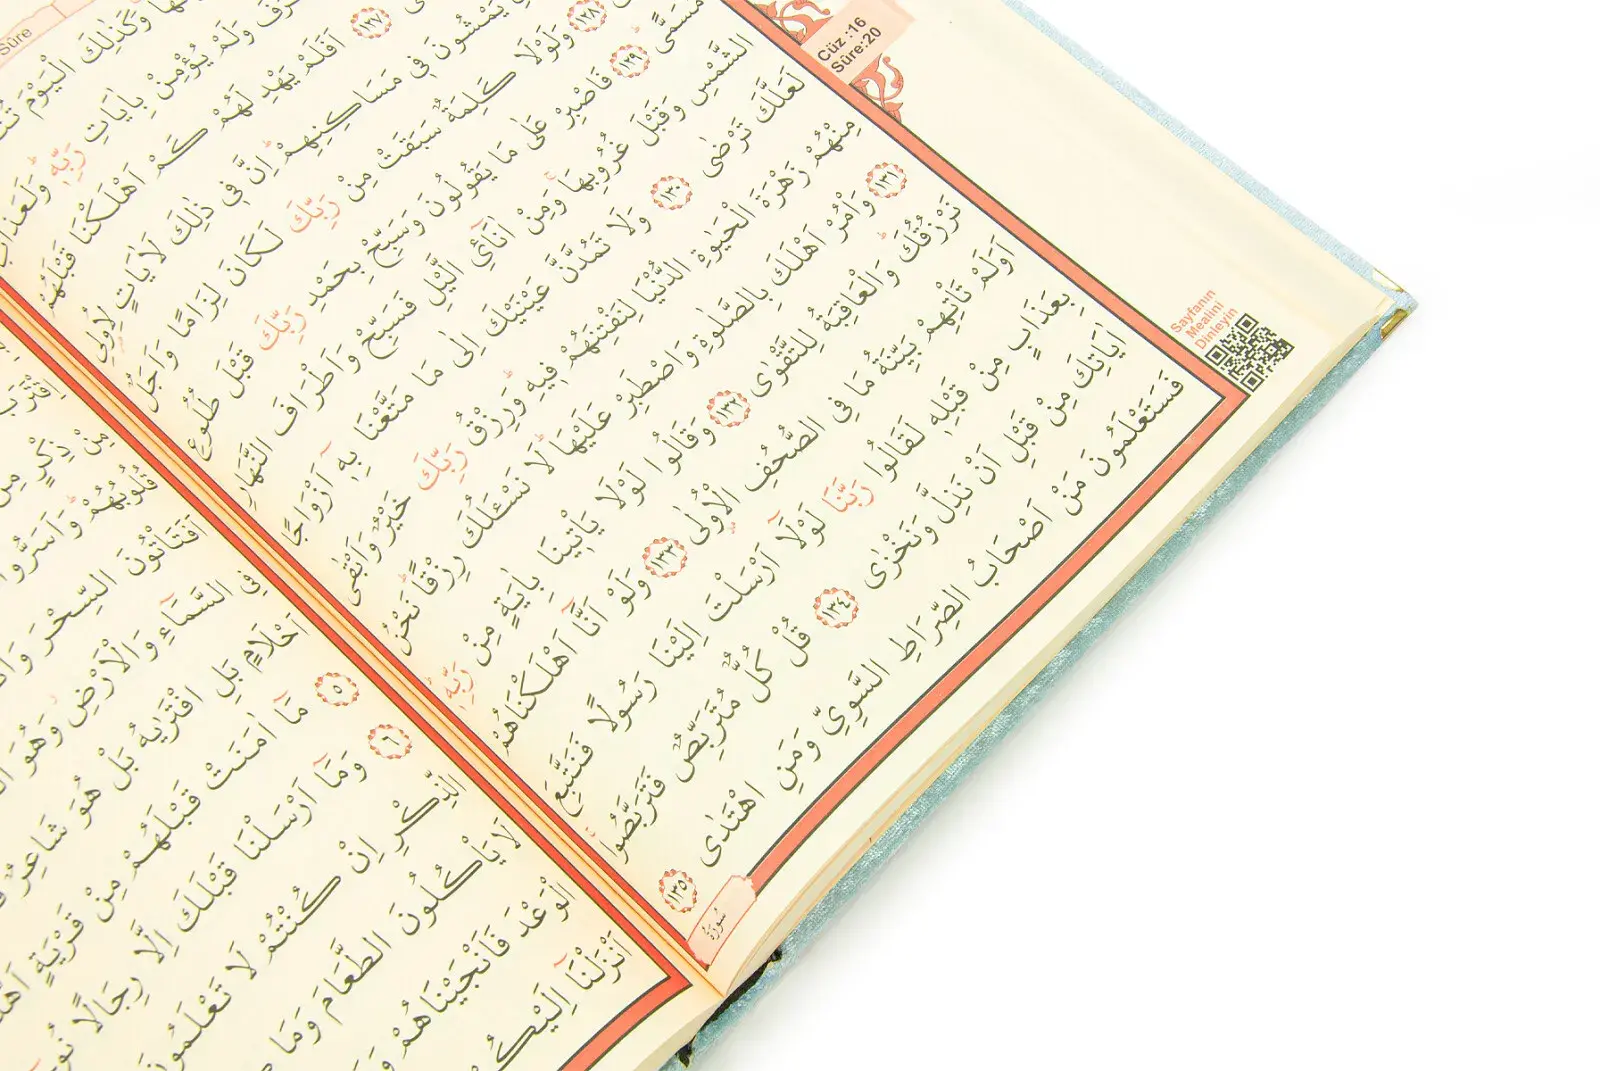 Cüz :16
Sûre:20
Sûre
وَكَذٰلِكَ الْيَوْمَ
وَلَمْ يُؤْمِنْ بِاٰيَاتِ رَبِّهٖ وَلَعَذَابُ
﴿١٢٧﴾ اَفَلَمْ يَهْدِ لَهُمْ كَمْ اَهْلَكْنَا قَبْلَهُمْ
يَمْشُونَ فٖي مَسَاكِنِهِمْ اِنَّ فٖي ذٰلِكَ لَاٰيَاتٍ لِاُولِي
﴿١٢٨﴾ وَلَوْلَا كَلِمَةٌ سَبَقَتْ مِنْ رَبِّكَ لَكَانَ لِزَامًا وَاَجَلٌ
مُسَمًّى ﴿١٢٩﴾ فَاصْبِرْ عَلٰى مَا يَقُولُونَ وَسَبِّحْ بِحَمْدِ رَبِّكَ قَبْلَ طُلُوعِ
الشَّمْسِ وَقَبْلَ غُرُوبِهَا وَمِنْ اٰنَٓائِ الَّيْلِ فَسَبِّحْ وَاَطْرَافَ النَّهَارِ
لَعَلَّكَ تَرْضٰى ﴿١٣٠﴾ وَلَا تَمُدَّنَّ عَيْنَيْكَ اِلٰى مَا مَتَّعْنَا بِهٖٓ اَزْوَاجًا
مِنْهُمْ زَهْرَةَ الْحَيٰوةِ الدُّنْيَا لِنَفْتِنَهُمْ فٖيهِ وَرِزْقُ رَبِّكَ خَيْرٌ وَاَبْقٰى
﴿١٣١﴾ وَأْمُرْ اَهْلَكَ بِالصَّلٰوةِ وَاصْطَبِرْ عَلَيْهَا لَا نَسْـَٔلُكَ رِزْقًا نَحْنُ
نَرْزُقُكَ وَالْعَاقِبَةُ لِلتَّقْوٰى ﴿١٣٢﴾ وَقَالُوا لَوْلَا يَأْتٖينَا بِاٰيَةٍ مِنْ رَبِّهٖ
اَوَلَمْ تَأْتِهِمْ بَيِّنَةُ مَا فِي الصُّحُفِ الْاُولٰى ﴿١٣٣﴾ وَلَوْ اَنَّٓا اَهْلَكْنَاهُمْ
بِعَذَابٍ مِنْ قَبْلِهٖ لَقَالُوا رَبَّنَا لَوْلَٓا اَرْسَلْتَ اِلَيْنَا رَسُولًا فَنَتَّبِعَ
اٰيَاتِكَ مِنْ قَبْلِ اَنْ نَذِلَّ وَنَخْزٰى ﴿١٣٤﴾ قُلْ كُلٌّ مُتَرَبِّصٌ فَتَرَبَّصُوا
فَسَتَعْلَمُونَ مَنْ اَصْحَابُ الصِّرَاطِ السَّوِيِّ وَمَنِ اهْتَدٰى ﴿١٣٥﴾
سُورَةُ
Sayfanın
Mealini
Dinleyin
مِنْ ذِكْرٍ مِنْ
قُلُوبُهُمْ وَاَسَرُّوا
اَفَتَأْتُونَ السِّحْرَ
فِي السَّمَٓاءِ وَالْاَرْضِ وَهُوَ
اَحْلَامٍ بَلِ افْتَرٰيهُ بَلْ هُوَ شَاعِرٌ
﴿٥﴾ مَٓا اٰمَنَتْ قَبْلَهُمْ مِنْ قَرْيَةٍ
﴿٦﴾ وَمَٓا اَرْسَلْنَا قَبْلَكَ اِلَّا رِجَالًا
الذِّكْرِ اِنْ كُنْتُمْ لَا تَعْلَمُونَ
لَا يَأْكُلُونَ الطَّعَامَ وَمَا
الْوَعْدَ فَاَنْجَيْنَاهُمْ
اَنْزَلْنَٓا اِلَيْكُمْ